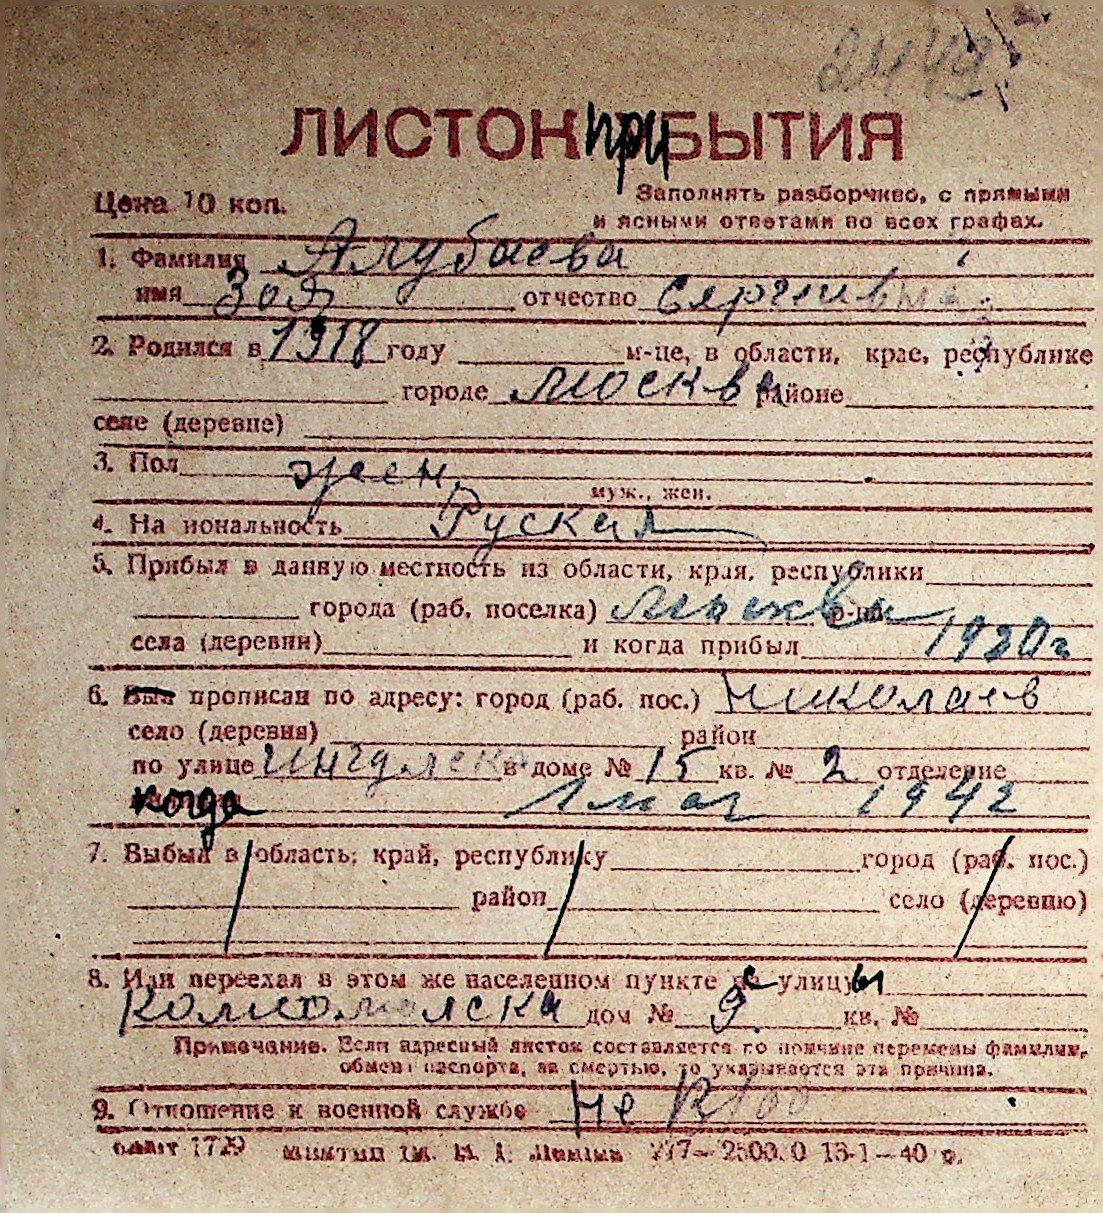 ЛИСТОК при БЫТИЯ
Цена 10 коп.
Заполнять разборчиво, с прямыми
и ясными ответами во всех графах.
1. Фамилия Алубаева
имя Зоя отчество
2. Родился в 1918 году м-це, в области, крае, республике
городе Москва районе
селе (деревне)
3. Пол жен.
муж., жен.
4. На иональность Руская
5. Прибыл в данную местность из области, края, республики
города (раб. поселка) Москва р-на
села (деревни) и когда прибыл 1930г
6. Был прописан по адресу: город (раб. пос.) Николаев
село (деревня) район
по улице в доме № 15 кв. № 2 отделение
когда 1 мая 1942
7. Выбыл в область; край, республику город (раб. пос.)
район село (деревню)
8. Или переехал в этом же населенном пункте с улицы
дом № 9 кв. №
Примечание. Если адресный листок составляется по причине перемены фамилии,
обмена паспорта, за смертью, то указывается эта причина.
9. Отношение к военной службе не
1729 2500.0 13-1-40 р.